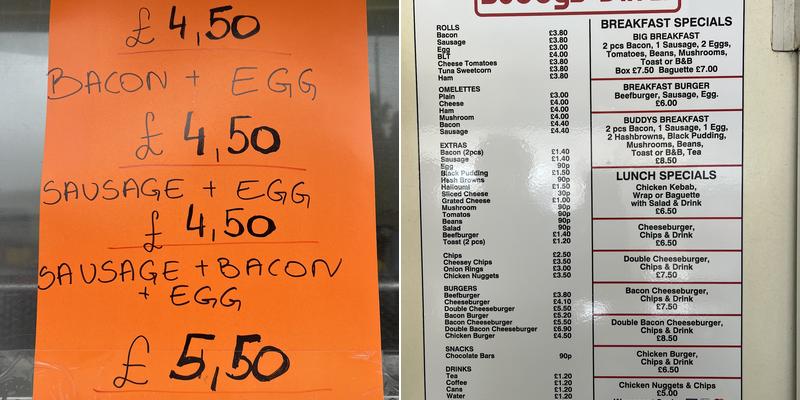 £4,50
BACON + EGG
£4,50
SAUSAGE + EGG
£4,50
SAUSAGE + BACON
+ EGG
£5,50
ROLLS
Bacon £3.80
Sausage £3.80
Egg £3.00
BLT £4.00
Cheese Tomatoes £3.80
Tuna Sweetcorn £3.80
Ham £3.80
OMELETTES
Plain £3.00
Cheese £4.00
Ham £4.00
Mushroom £4.00
Bacon £4.40
Sausage £4.40
EXTRAS
Bacon (2pcs) £1.40
Sausage £1.40
Egg 90p
Black Pudding £1.50
Hash Browns 90p
Halloumi £1.50
Sliced Cheese 30p
Grated Cheese £1.00
Mushroom 90p
Tomatos 90p
Beans 90p
Salad 90p
Beefburger £1.40
Toast (2 pcs) £1.20
Chips £2.50
Cheesey Chips £3.50
Onion Rings £3.00
Chicken Nuggets £3.50
BURGERS
Beefburger £3.80
Cheeseburger £4.10
Double Cheeseburger £5.50
Bacon Burger £5.20
Bacon Cheeseburger £5.50
Double Bacon Cheeseburger £6.90
Chicken Burger £4.50
SNACKS
Chocolate Bars 90p
DRINKS
Tea £1.20
Coffee £1.20
Cans £1.20
Water £1.20
BREAKFAST SPECIALS
BIG BREAKFAST
2 pcs Bacon, 1 Sausage, 2 Eggs,
Tomatoes, Beans, Mushrooms,
Toast or B&B
Box £7.50 Baguette £7.00
BREAKFAST BURGER
Beefburger, Sausage, Egg.
£6.00
BUDDYS BREAKFAST
2 pcs Bacon, 1 Sausage, 1 Egg,
2 Hashbrowns, Black Pudding,
Mushrooms, Beans,
Toast or B&B, Tea
£8.50
LUNCH SPECIALS
Chicken Kebab,
Wrap or Baguette
with Salad & Drink
£6.50
Cheeseburger,
Chips & Drink
£6.50
Double Cheeseburger,
Chips & Drink
£7.50
Bacon Cheeseburger,
Chips & Drink
£7.50
Double Bacon Cheeseburger,
Chips & Drink
£8.50
Chicken Burger,
Chips & Drink
£6.50
Chicken Nuggets & Chips
£5.00